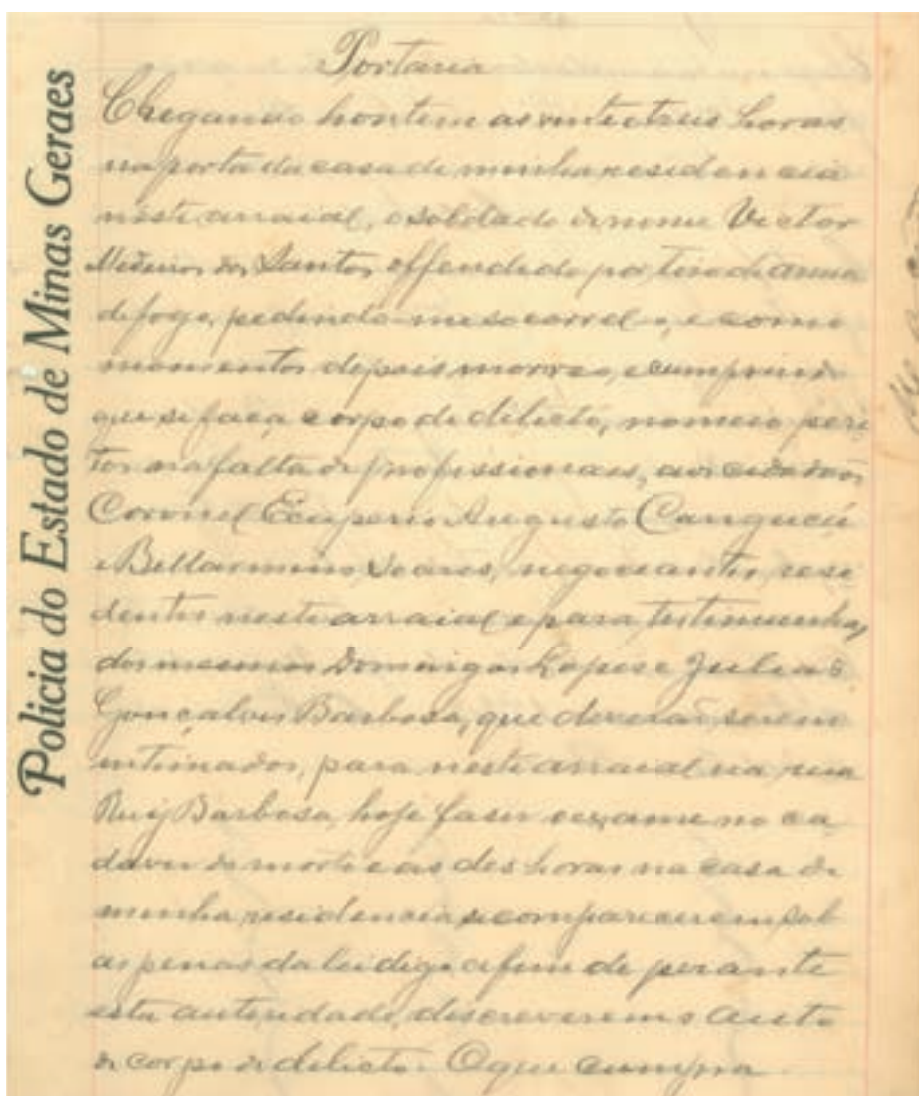 Policia do Estado de Minas Geraes
Portaria
Chegando hontem as vinte e tres horas
na porta da casa de minha residencia
neste arraial, o soldado de nome Victor
Medeiros dos Santos, offendido por tiro de arma
de fogo, pedindo-me soccorro, e como
momentos depois morreo, e cumprindo
que se faça corpo de delicto, nomeio peri
tos na falta de profissionaes, aos cidadãos
Coronel Exuperio Augusto Canguçú
e Bellarmino Soares, negociantes, resi
dentes neste arraial e para testimunhas
dos mesmos Domingos Lopes e Julia
Gonçalves Barbosa, que deverão serem
intimados, para neste arraial na rua
Ruy Barbosa, hoje faser o exame no ca
daver do morto as des horas na casa de
minha residencia, e comparecerem sob
as penas da lei digo afim de perante
esta autoridade, descreverem o auto
de corpo de delicto. O que cumpra